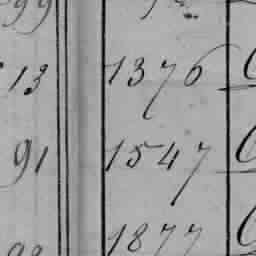 99
13 1376
91 1547
1877